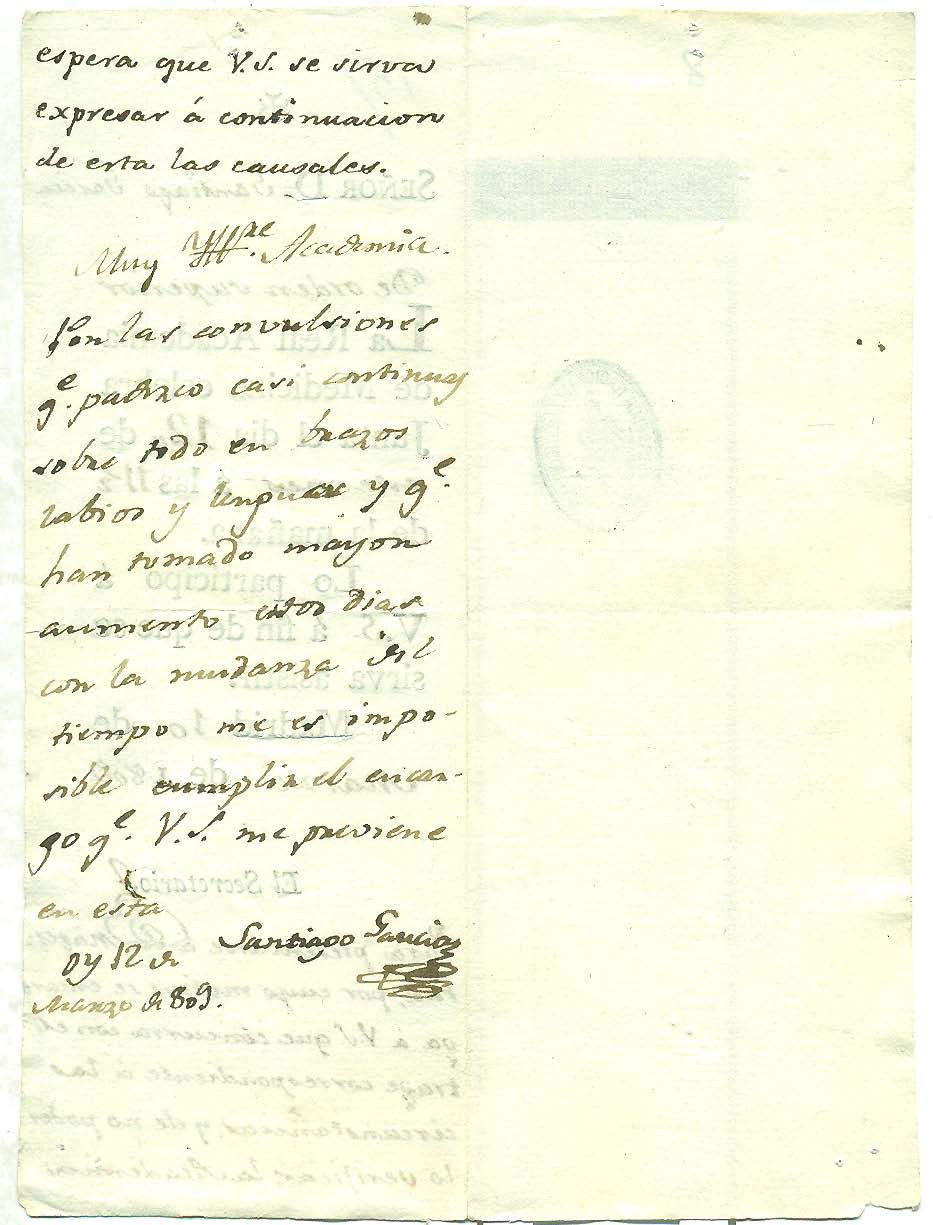 espera que V.S. se sirva
expresar á continuacion
de esta las causales.
Muy Yll.re Academia.
Por las convulsiones
q.e padezco casi continuas
sobre todo en brazos
labios y lengua y q.e
han tomado mayor
aumento estos dias
con la mudanza del
tiempo me es impo-
sible cumplir el encar-
go q.e V.S. me previene
en esta
oy 12 de
Marzo de 809.
Santiago Garcia